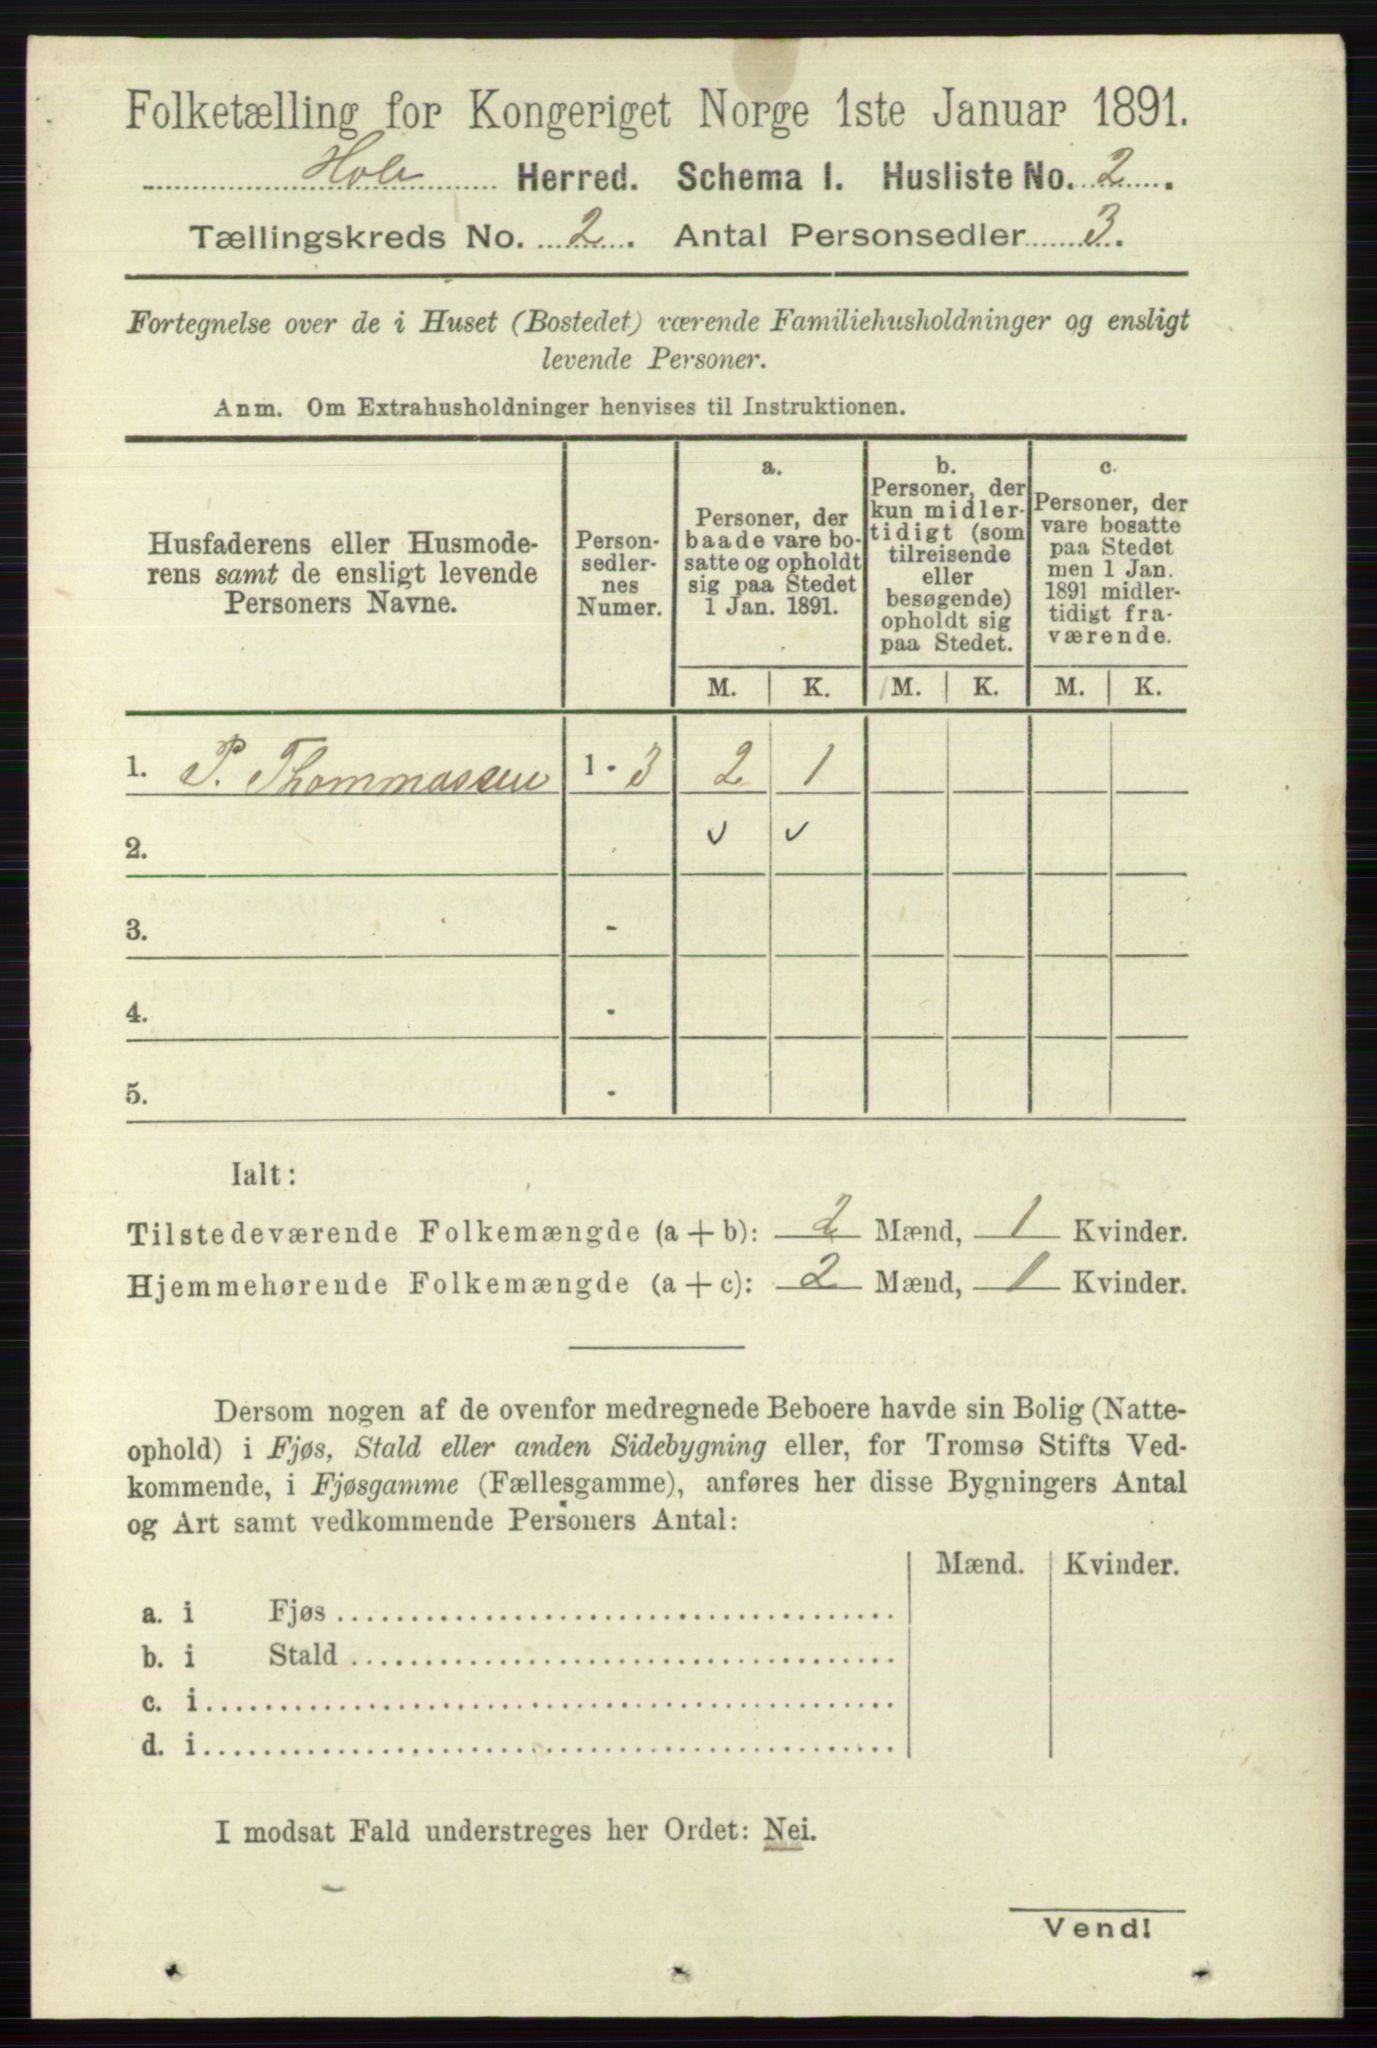 Folketælling for Kongeriget Norge 1ste Januar 1891.
Hole Herred. Schema I. Husliste No. 2.
Tællingskreds No. 2. Antal Personsedler 3.
Fortegnelse over de i Huset (Bostedet) værende Familiehusholdninger og ensligt
levende Personer.
Anm. Om Extrahusholdninger henvises til Instruktionen.
Husfaderens eller Husmode-
rens samt de ensligt levende
Personers Navne.
Person-
sedler-
nes
Numer.
a.
Personer, der
baade vare bo-
satte og opholdt
sig paa Stedet
1 Jan. 1891.
b.
Personer, der
kun midler-
tidigt (som
tilreisende
eller
besøgende)
opholdt sig
paa Stedet.
c.
Personer, der
vare bosatte
paa Stedet
men 1 Jan.
1891 midler-
tidigt fra-
værende.
M. K. M. K. M. K.
1. P. Thommassen 1 - 3 2 1
2. ✓ ✓
3. -
4. -
5. -
Ialt:
Tilstedeværende Folkemængde (a + b): 2 Mænd, 1 Kvinder.
Hjemmehørende Folkemængde (a + c): 2 Mænd, 1 Kvinder.
Dersom nogen af de ovenfor medregnede Beboere havde sin Bolig (Natte-
ophold) i Fjøs, Stald eller anden Sidebygning eller, for Tromsø Stifts Ved-
kommende, i Fjøsgamme (Fællesgamme), anføres her disse Bygningers Antal
og Art samt vedkommende Personers Antal:
Mænd. Kvinder.
a. i Fjøs
b. i Stald
c. i
d. i
I modsat Fald understreges her Ordet: Nei.
Vend!